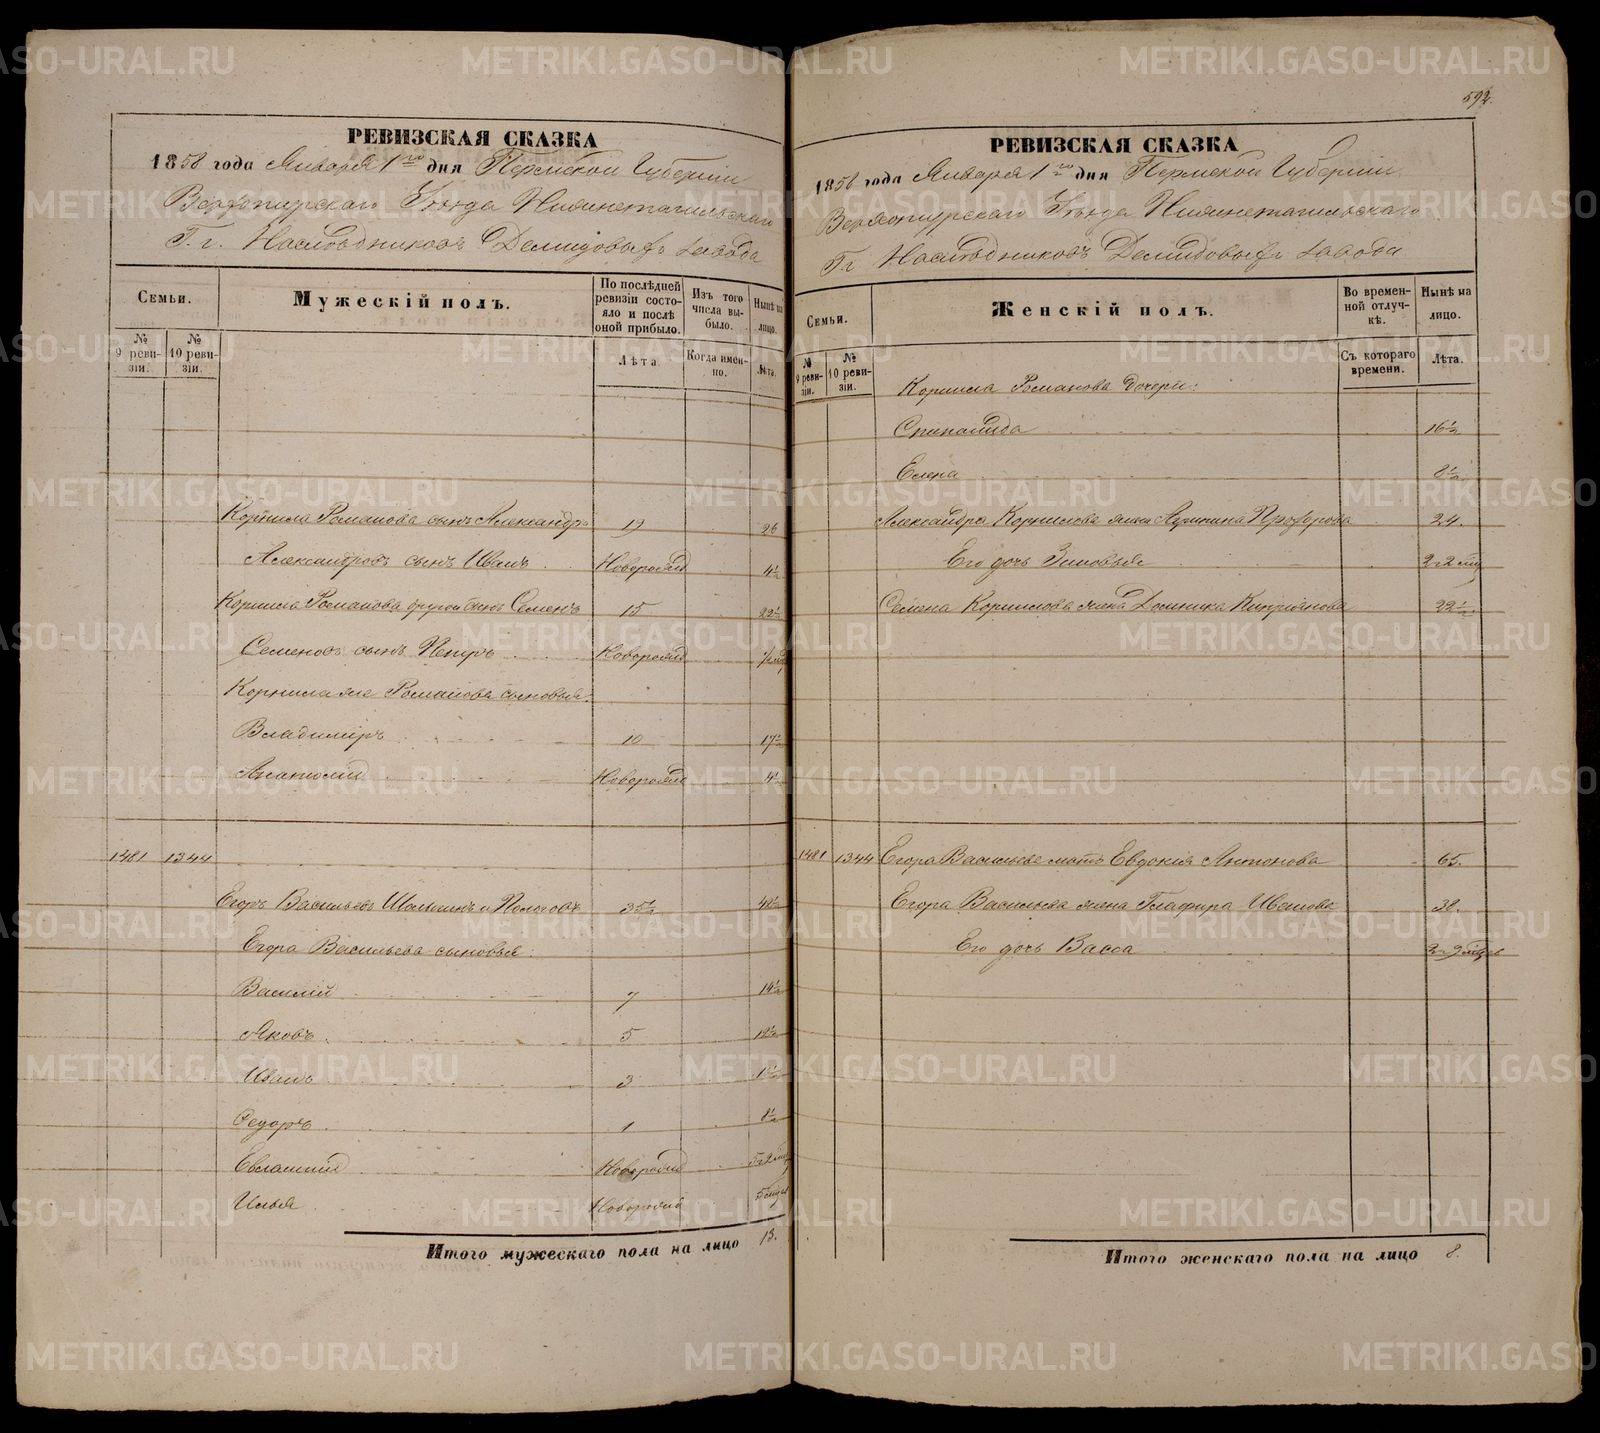 592.
РЕВИЗСКАЯ СКАЗКА
1858 года Января 1го дня Пермской Губернии
Верхотурского Уѣзда Нижнетагильского
Г.г. Наслѣдниковъ Демидовыхъ завода
Семьи.
№ 9 ревизіи.
№ 10 ревизіи.
Мужескій полъ.
По послѣдней ревизіи состояло и послѣ оной прибыло.
Лѣта.
Изъ того числа выбыло.
Когда именно.
Нынѣ на лицо.
Лѣта.
Корнила Романова сынъ Александръ 19 26
Александровъ сынъ Иванъ Новорожд 4½
Корнила Романова другой сынъ Семенъ 15 22½
Семеновъ сынъ Петръ Новорожд
Корнила же Романова сыновья:
Владиміръ 10 17½
Анатолій Новорожд 4½
1481 1344
Егоръ Васильевъ 35½ 42½
Егора Васильева сыновья:
Василій 7 14½
Яковъ 5 12½
Иванъ 3
Федоръ 1 8½
Евлампій Новорожд 5 г 2 мѣс
Илья Новорожд 5 мѣся
Итого мужескаго пола на лицо 13.
РЕВИЗСКАЯ СКАЗКА
1858 года Января 1го дня Пермской Губерніи
Верхотурского Уѣзда Нижнетагильского
Гг Наслѣдниковъ Демидовыхъ завода
Семьи.
№ 9 ревизіи.
№ 10 ревизіи.
Женскій полъ.
Во временной отлучкѣ.
Съ котораго времени.
Нынѣ на лицо.
Лѣта.
Корнила Романова дочери:
16½
8½
Александра Корнилова жена Прохорова 24.
Его дочь Зиновья 2 г 2 мѣс
Семена Корнилова жена Домника Кипріянова 22½
1481 1344 Егора Васильева мать Евдокія Антонова 65.
Егора Васильева жена Глафира Иванова 38.
Его дочь Васса 2 г 9 мѣс
Итого женскаго пола на лицо 8.
METRIKI.GASO-URAL.RU